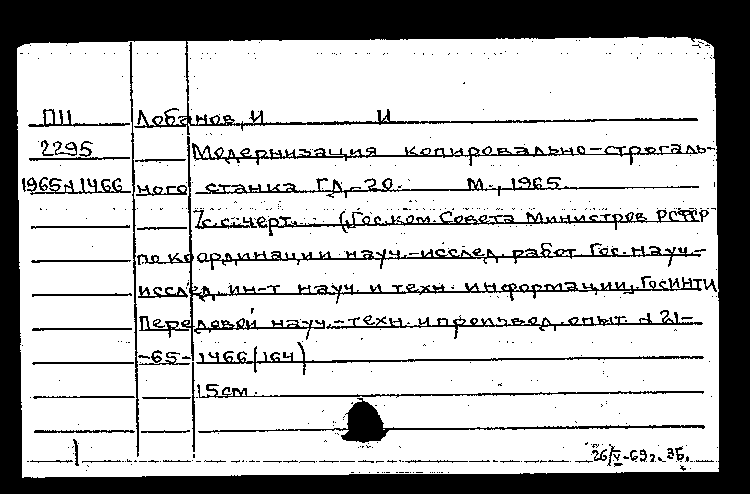 ПП Лобанов, И И
2295 Модернизация копировально-строгаль-
1965 № 1466 ного станка ГД-20. М., 1965.
7с. с черт. (Гос. ком. Совета Министров РСФСР
по координации науч.-исслед. работ Гос. науч.-
исслед. ин-т науч. и техн. информации, ГосИНТИ
Передовой науч.-техн. и производ. опыт № 21-
-65-1466/164)
15см.
26/V-69г. ЗБ.